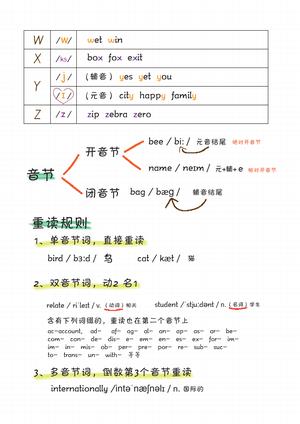 W /w/ wet win
X /ks/ box fox exit
Y /j/ (辅音) yes yet you
/ɪ/ (元音) city happy family
Z /z/ zip zebra zero
音节
开音节
bee / biː/ 元音结尾 绝对开音节
name / neɪm / 元+辅+e 相对开音节
闭音节
bag / bæg / 辅音结尾
重读规则
1、单音节词，直接重读
bird / bɜːd / 鸟 cat / kæt / 猫
2、双音节词，动2 名1
relate / rɪˈleɪt / v. (动词) 相关 student / ˈstjuːdənt / n. (名词) 学生
含有下列词缀的，重读也在第二个音节上
ac-account, ad- af- ag- al- an- ap- as- ar- be-
com- con- de- dis- e- em- en- es- ex- for- im-
im- in- mis- ob- per- pre- por- re- sub- suc-
to- trans- un- with- 等等
3、多音节词，倒数第3个音节重读
internationally /ɪntəˈnæʃnəlɪ / n. 国际的